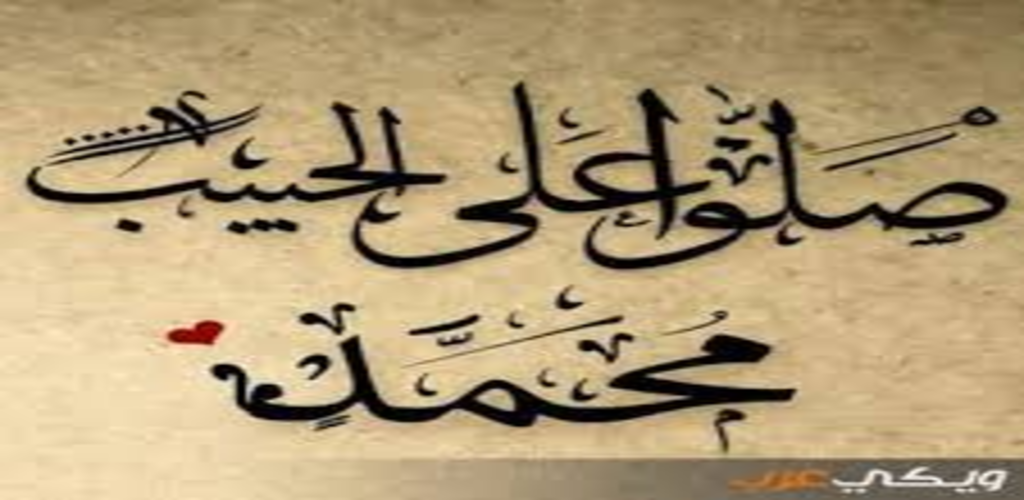 صَلُّوا عَلى الحبيب
مُحَمَّدٍ
ويكي عرب